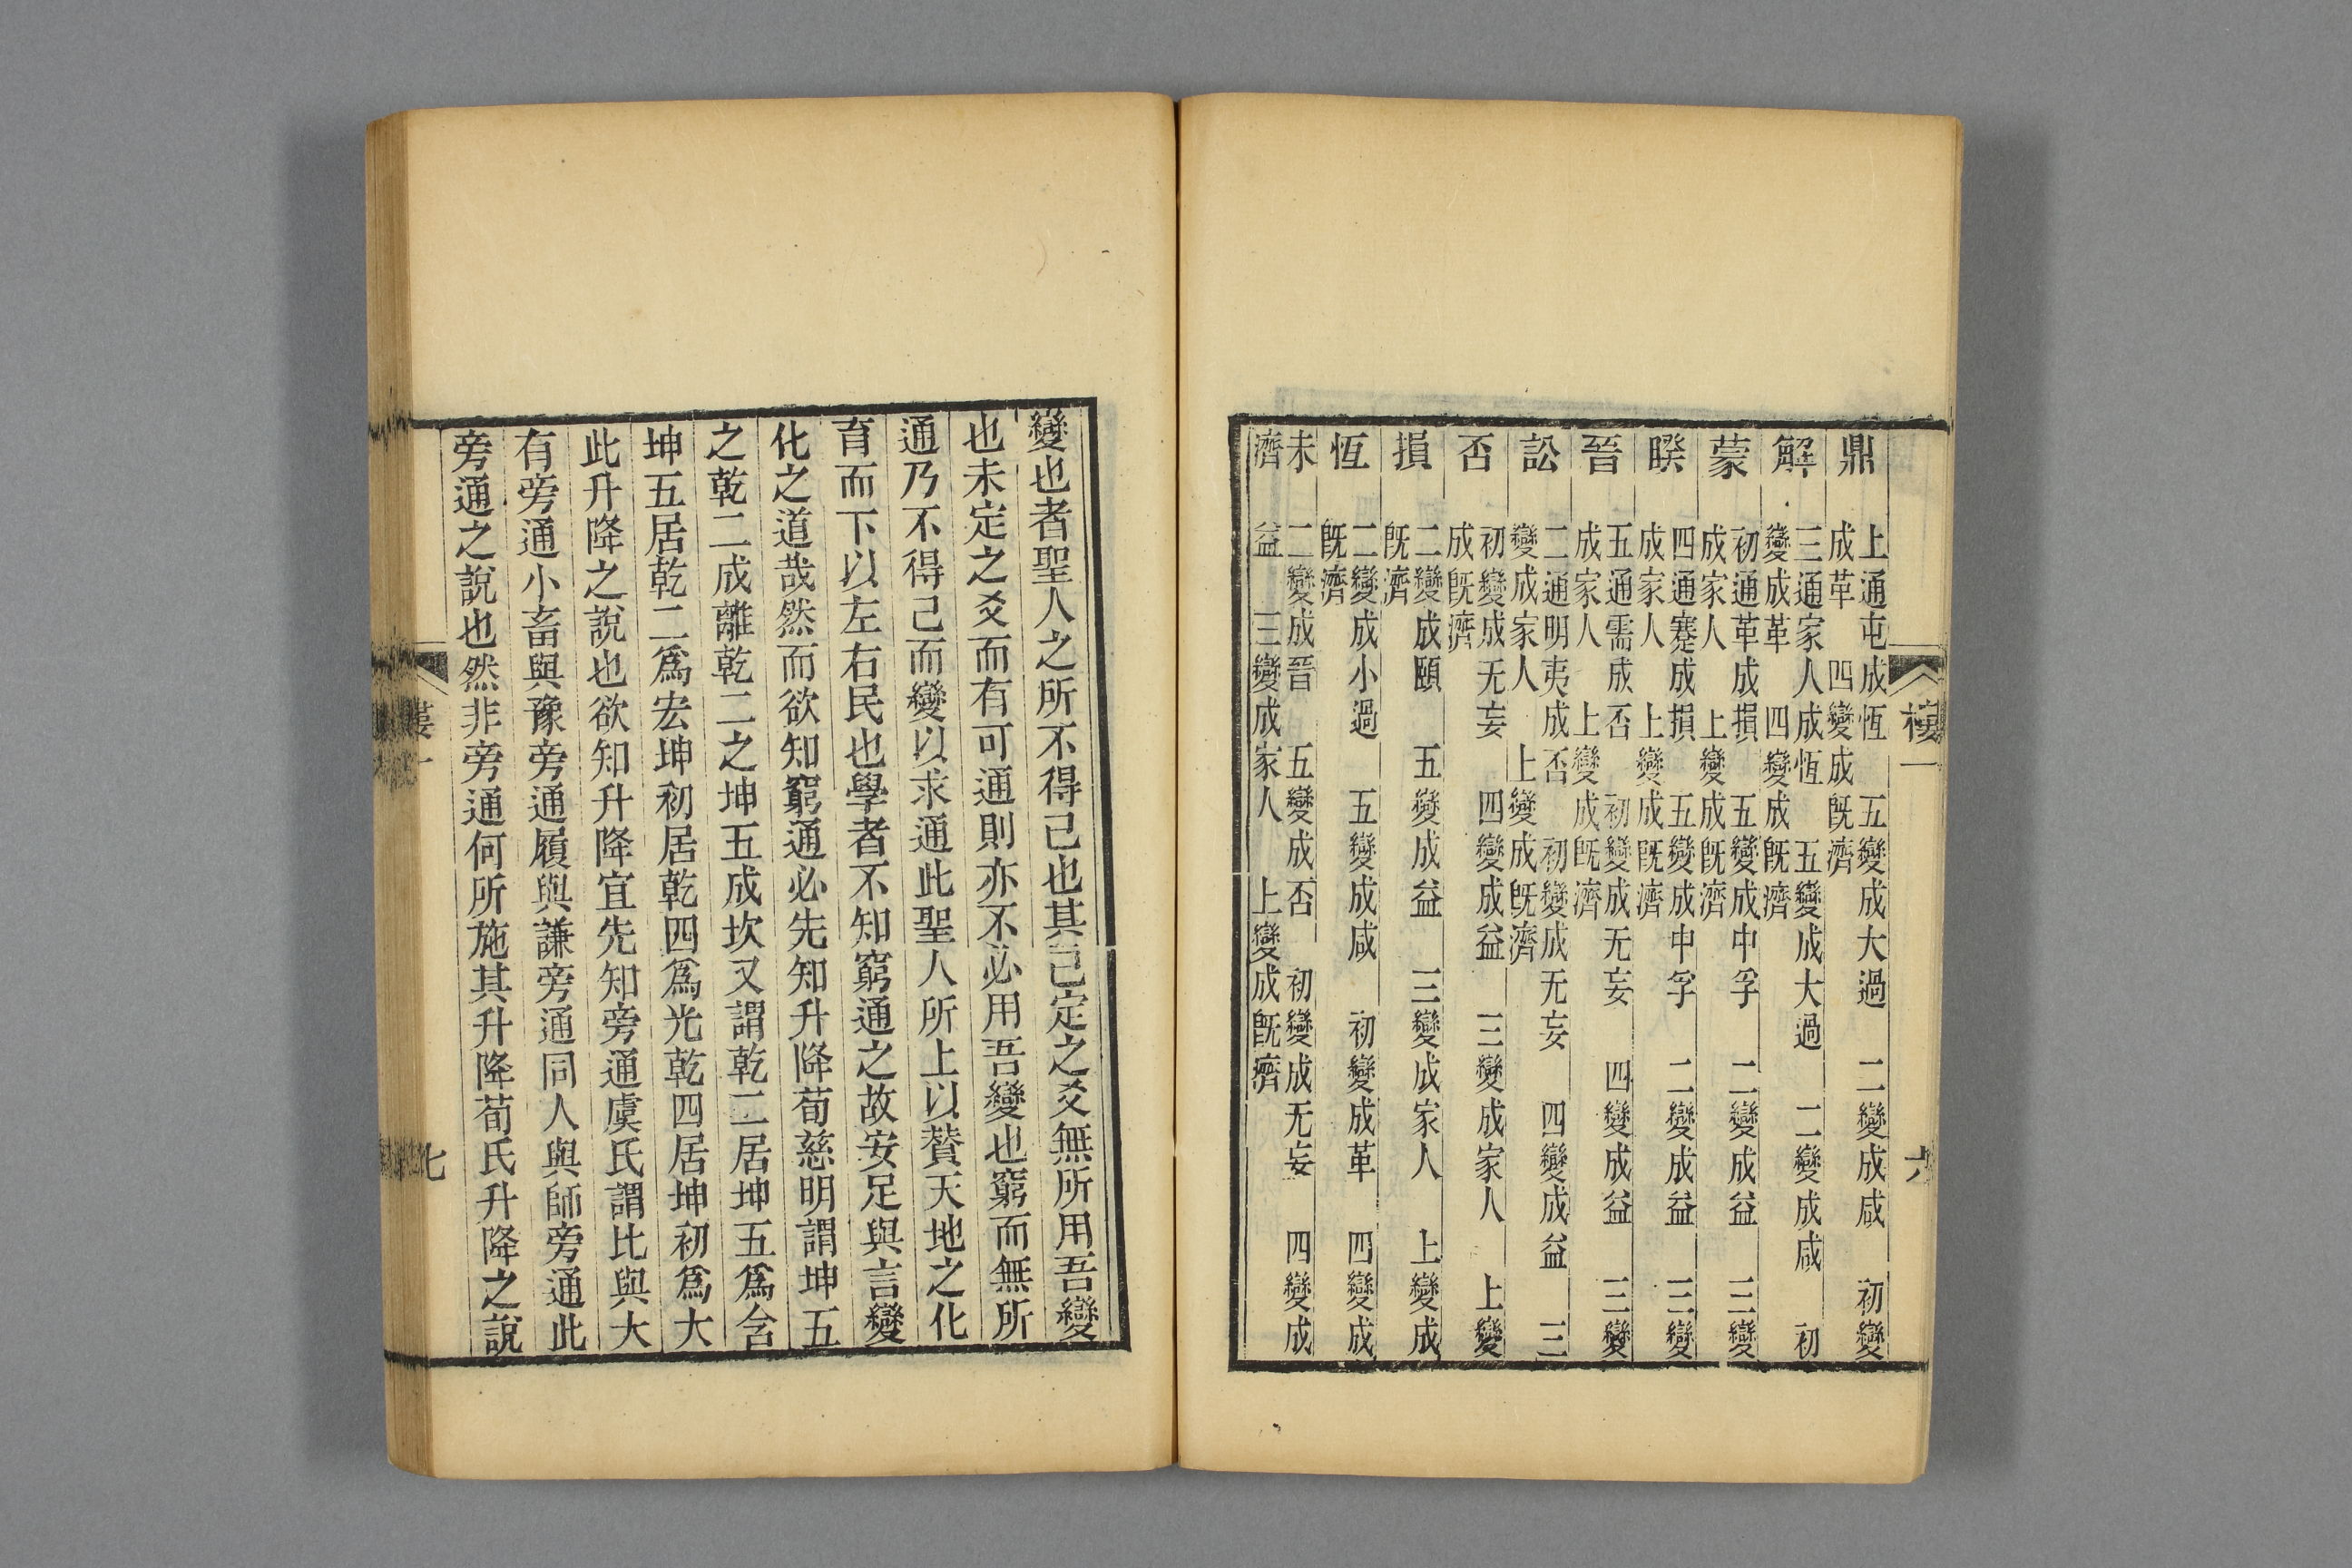 樓一
六
鼎 上通屯成恆 五變成大過 二變成咸 初變
成革 四變成既濟
解 三通家人成恆 五變成大過 二變成咸 初
變成革 四變成既濟
蒙 初通革成損 五變成中孚 二變成益 三變
成家人 上變成既濟
睽 四通蹇成損 五變成中孚 二變成益 三變
成家人 上變成既濟
晉 五通需成否 初變成无妄 四變成益 三變
成家人 上變成既濟
訟 二通明夷成否 初變成无妄 四變成益 三
變成家人 上變成既濟
否 初變成无妄 四變成益 三變成家人 上變
成既濟
損 二變成頤 五變成益 三變成家人 上變成
既濟
恆 二變成小過 五變成咸 初變成革 四變成
既濟
未濟 二變成晉 五變成否 初變成无妄 四變成
益 三變成家人 上變成既濟
變也者聖人之所不得已也其已定之爻無所用吾變
也未定之爻而有可通則亦不必用吾變也窮而無所
通乃不得已而變以求通此聖人所上以贊天地之化
育而下以左右民也學者不知窮通之故安足與言變
化之道哉然而欲知窮通必先知升降荀慈明謂坤五
之乾二成離乾二之坤五成坎又謂乾二居坤五爲含
坤五居乾二爲宏坤初居乾四爲光乾四居坤初爲大
此升降之說也欲知升降宜先知旁通虞氏謂比與大
有旁通小畜與豫旁通履與謙旁通同人與師旁通此
旁通之說也然非旁通何所施其升降荀氏升降之說
七